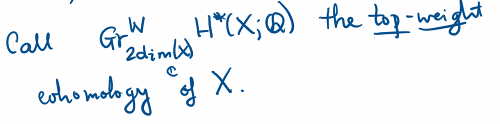 Call Gr^W_{2dim_ℂ(X)} H*(X;ℚ) the top-weight
cohomology of X.